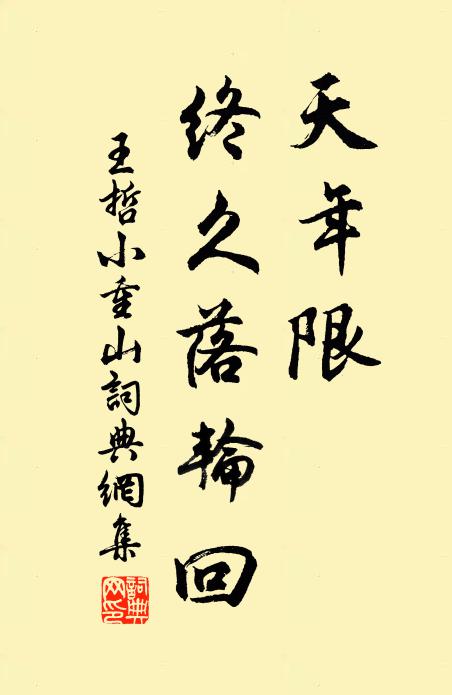 天年限
終久落輪回
王哲小重山詞典網集
詞典
网印